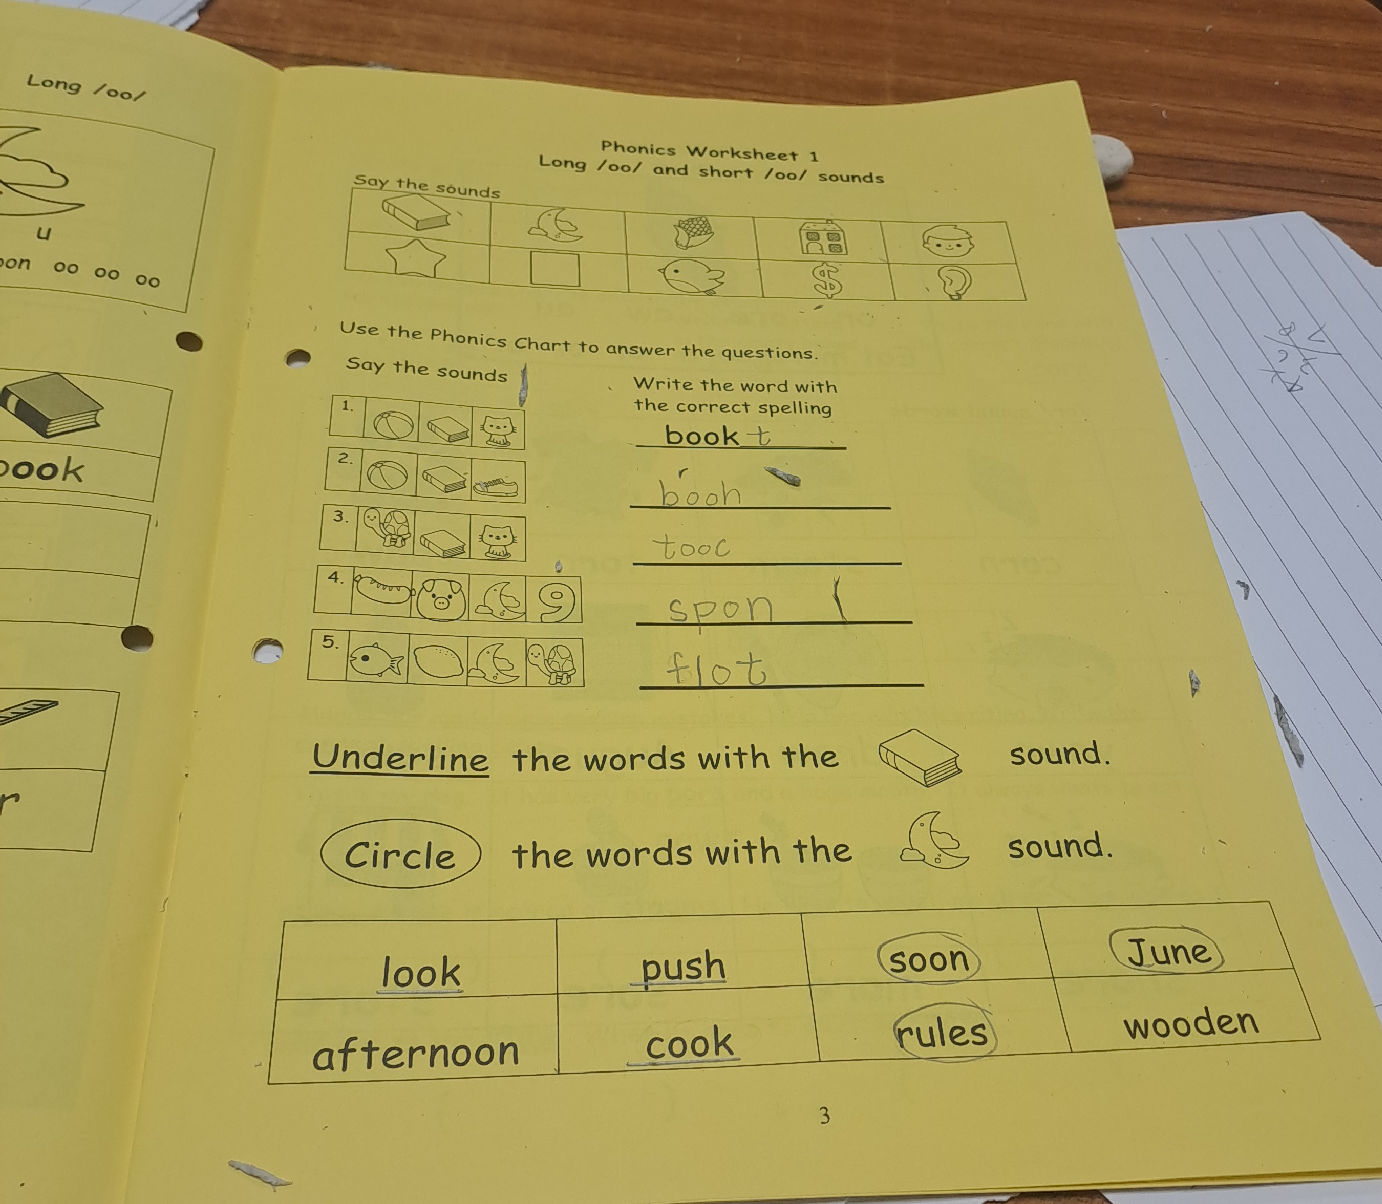 Long /oo/
u
oon oo oo oo
ook
r
Phonics Worksheet 1
Long /oo/ and short /oo/ sounds
Say the sounds
$
Use the Phonics Chart to answer the questions.
Say the sounds
Write the word with
the correct spelling
1.
book t
2.
r
booh
3.
tooc
4. 9
spon
5.
flot
Underline the words with the sound.
Circle the words with the sound.
look push soon June
afternoon cook rules wooden
3